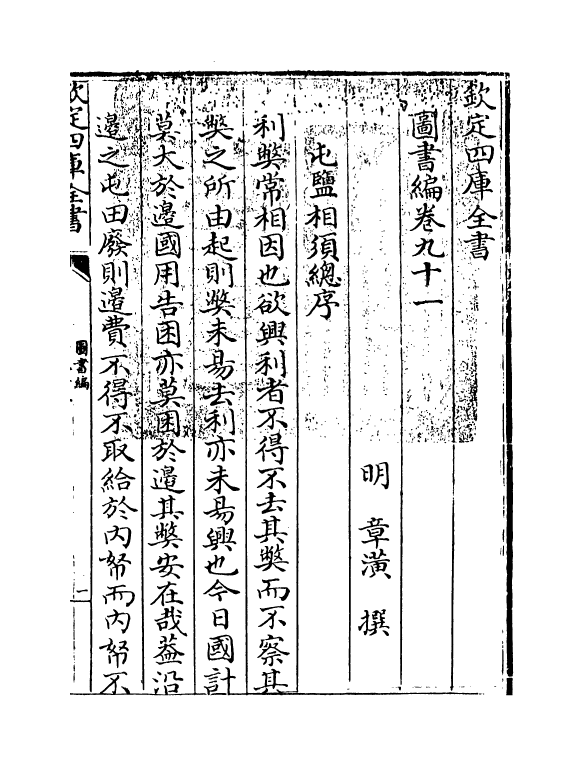 欽定四庫全書
圖書編卷九十一
明 章潢 撰
屯鹽相須總序
利獘常相因也欲興利者不得不去其獘而不察其
獘之所由起則獘未易去利亦未易興也今日國計
莫大於邊國用告困亦莫困於邊其獘安在哉葢沿
邊之屯田廢則邊費不得不取給於内帑而内帑不
欽定四庫全書
圖書編
一